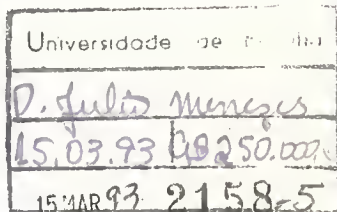 Universidade de
D. Julio Menezes
15.03.93 250.000,
15 MAR 93 2158-5